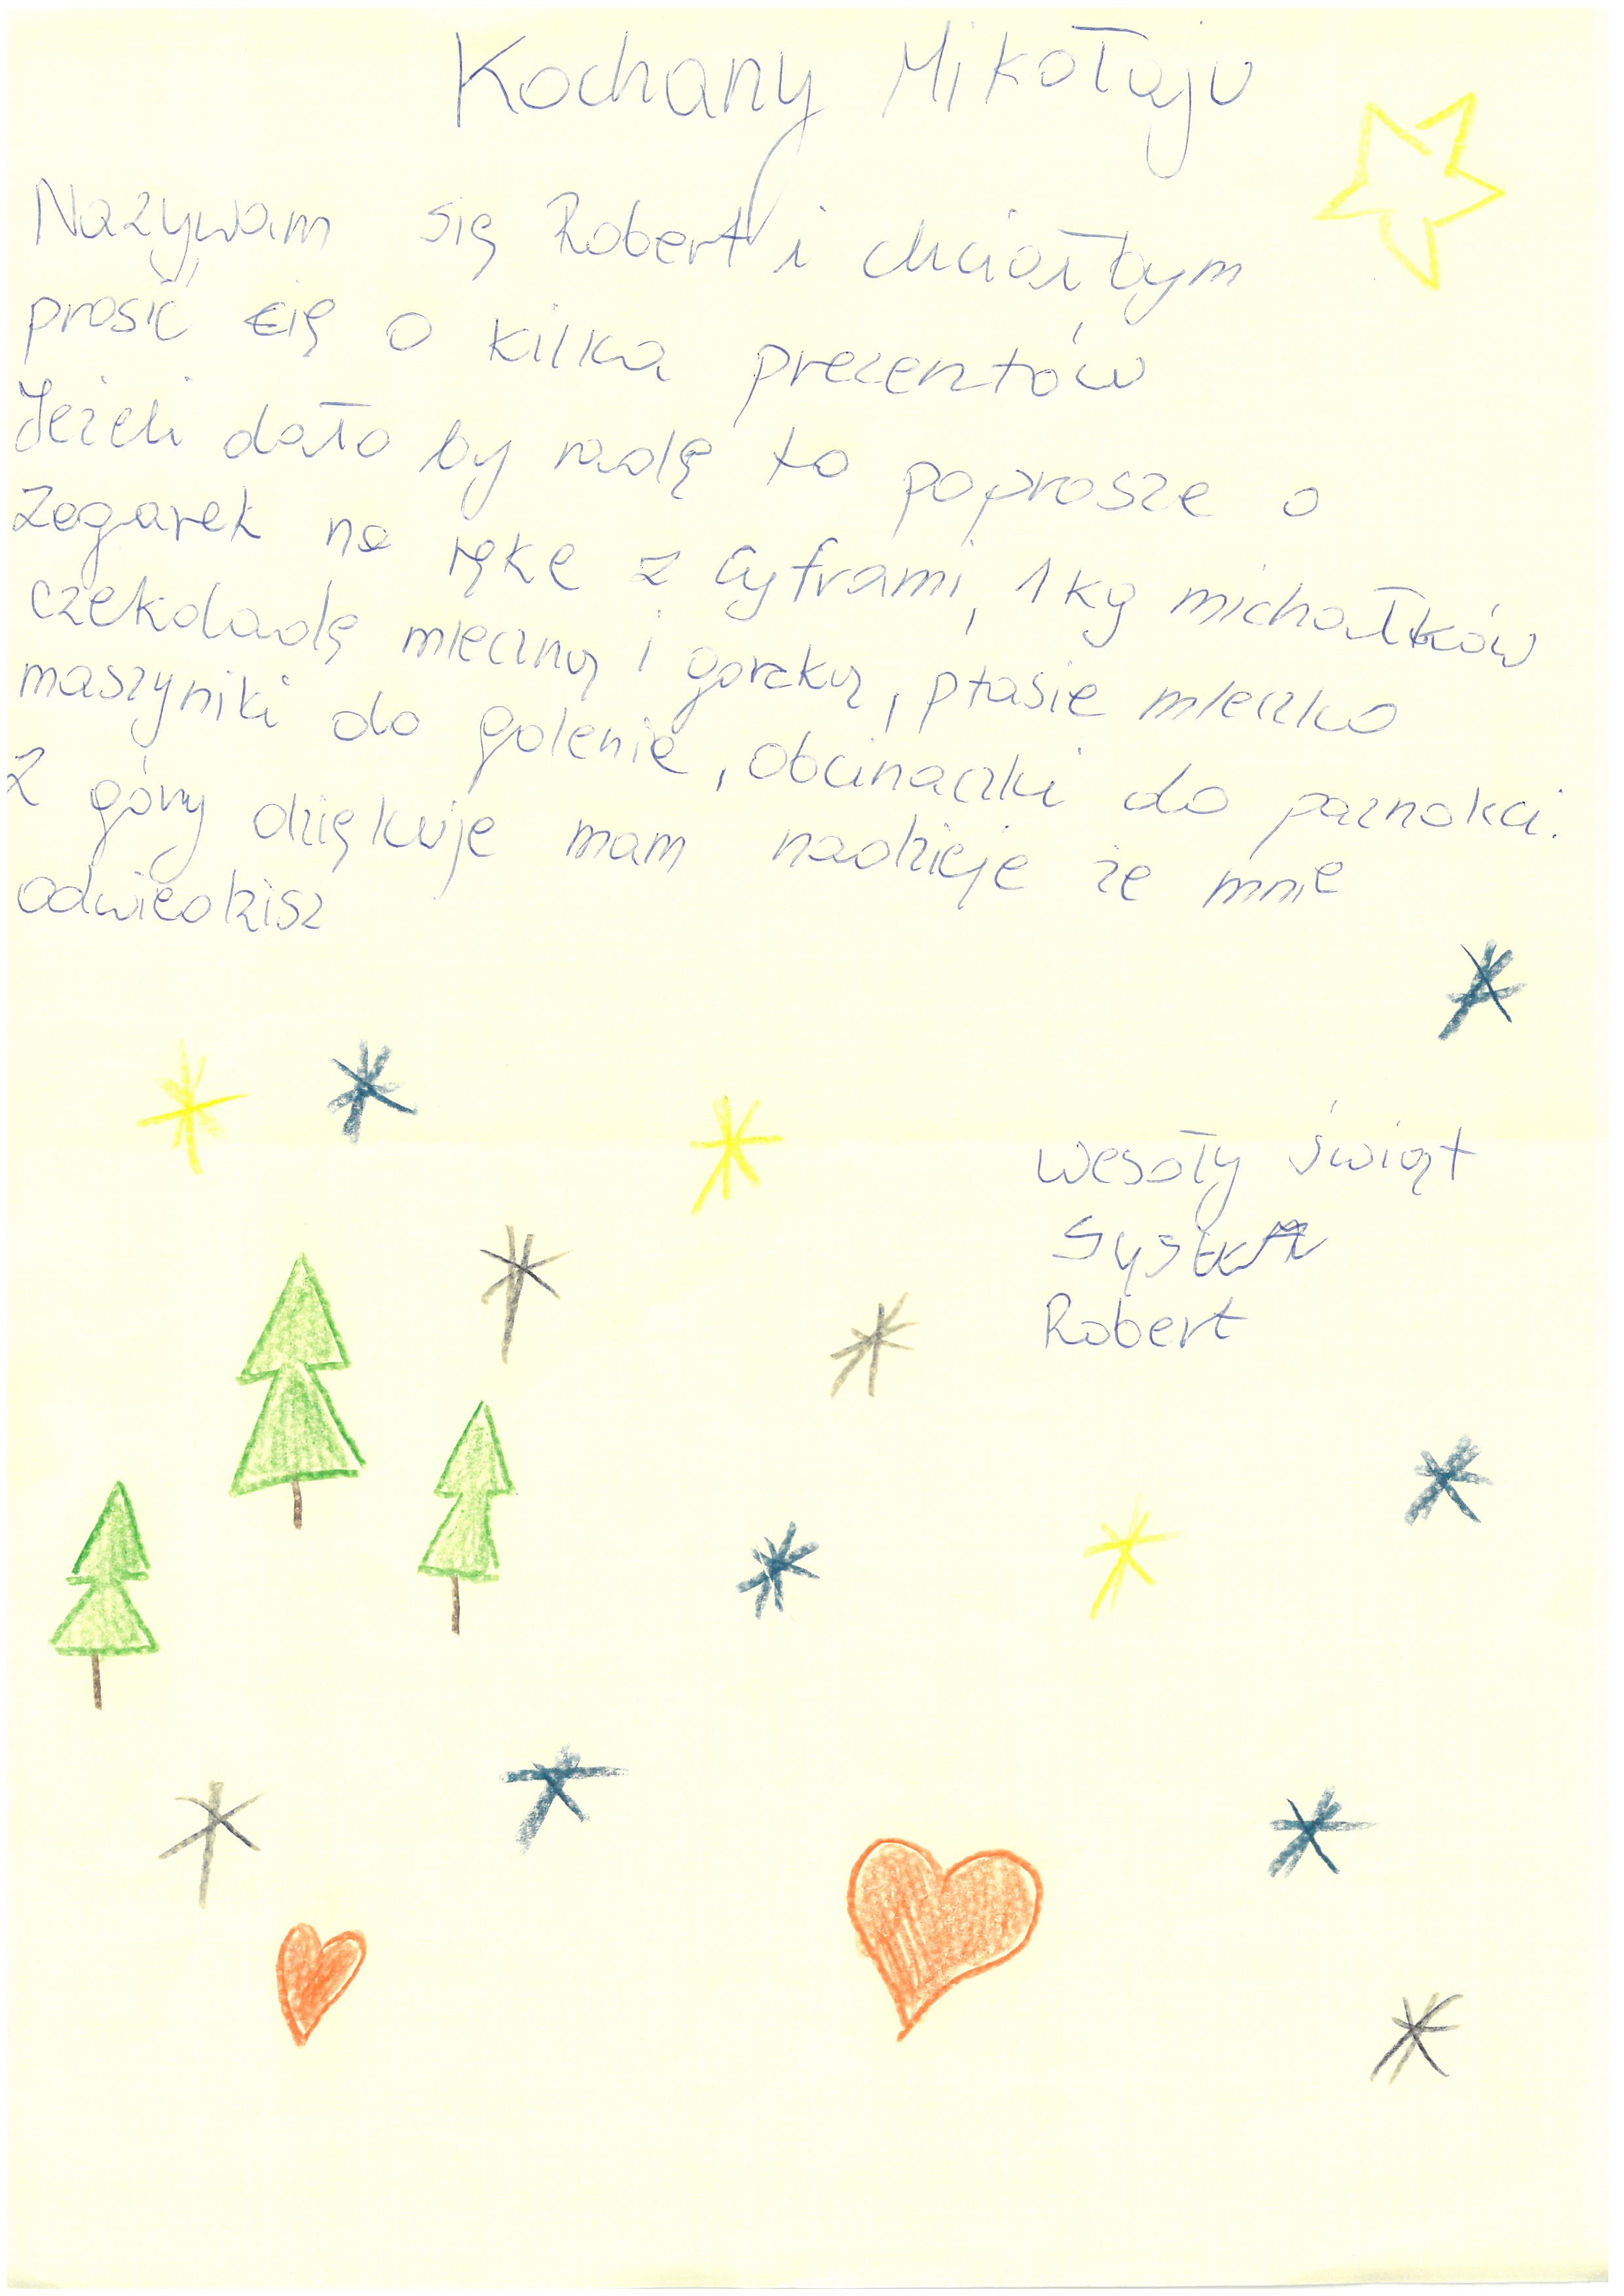 Kochany Mikołaju
Nazywam się Robert i chciałbym
prosić cię o kilka prezentów
Jeżeli dało by radę to poprosze o
Zegarek na rękę z Cyframi, 1 kg michałków
czekoladę mleczną i gorzką, ptasie mleczko
maszyniki do golenie, obcinaczki do paznokci.
Z góry dziękuje mam nadzieje że mnie
odwiedzisz
Wesoły świąt
Robert